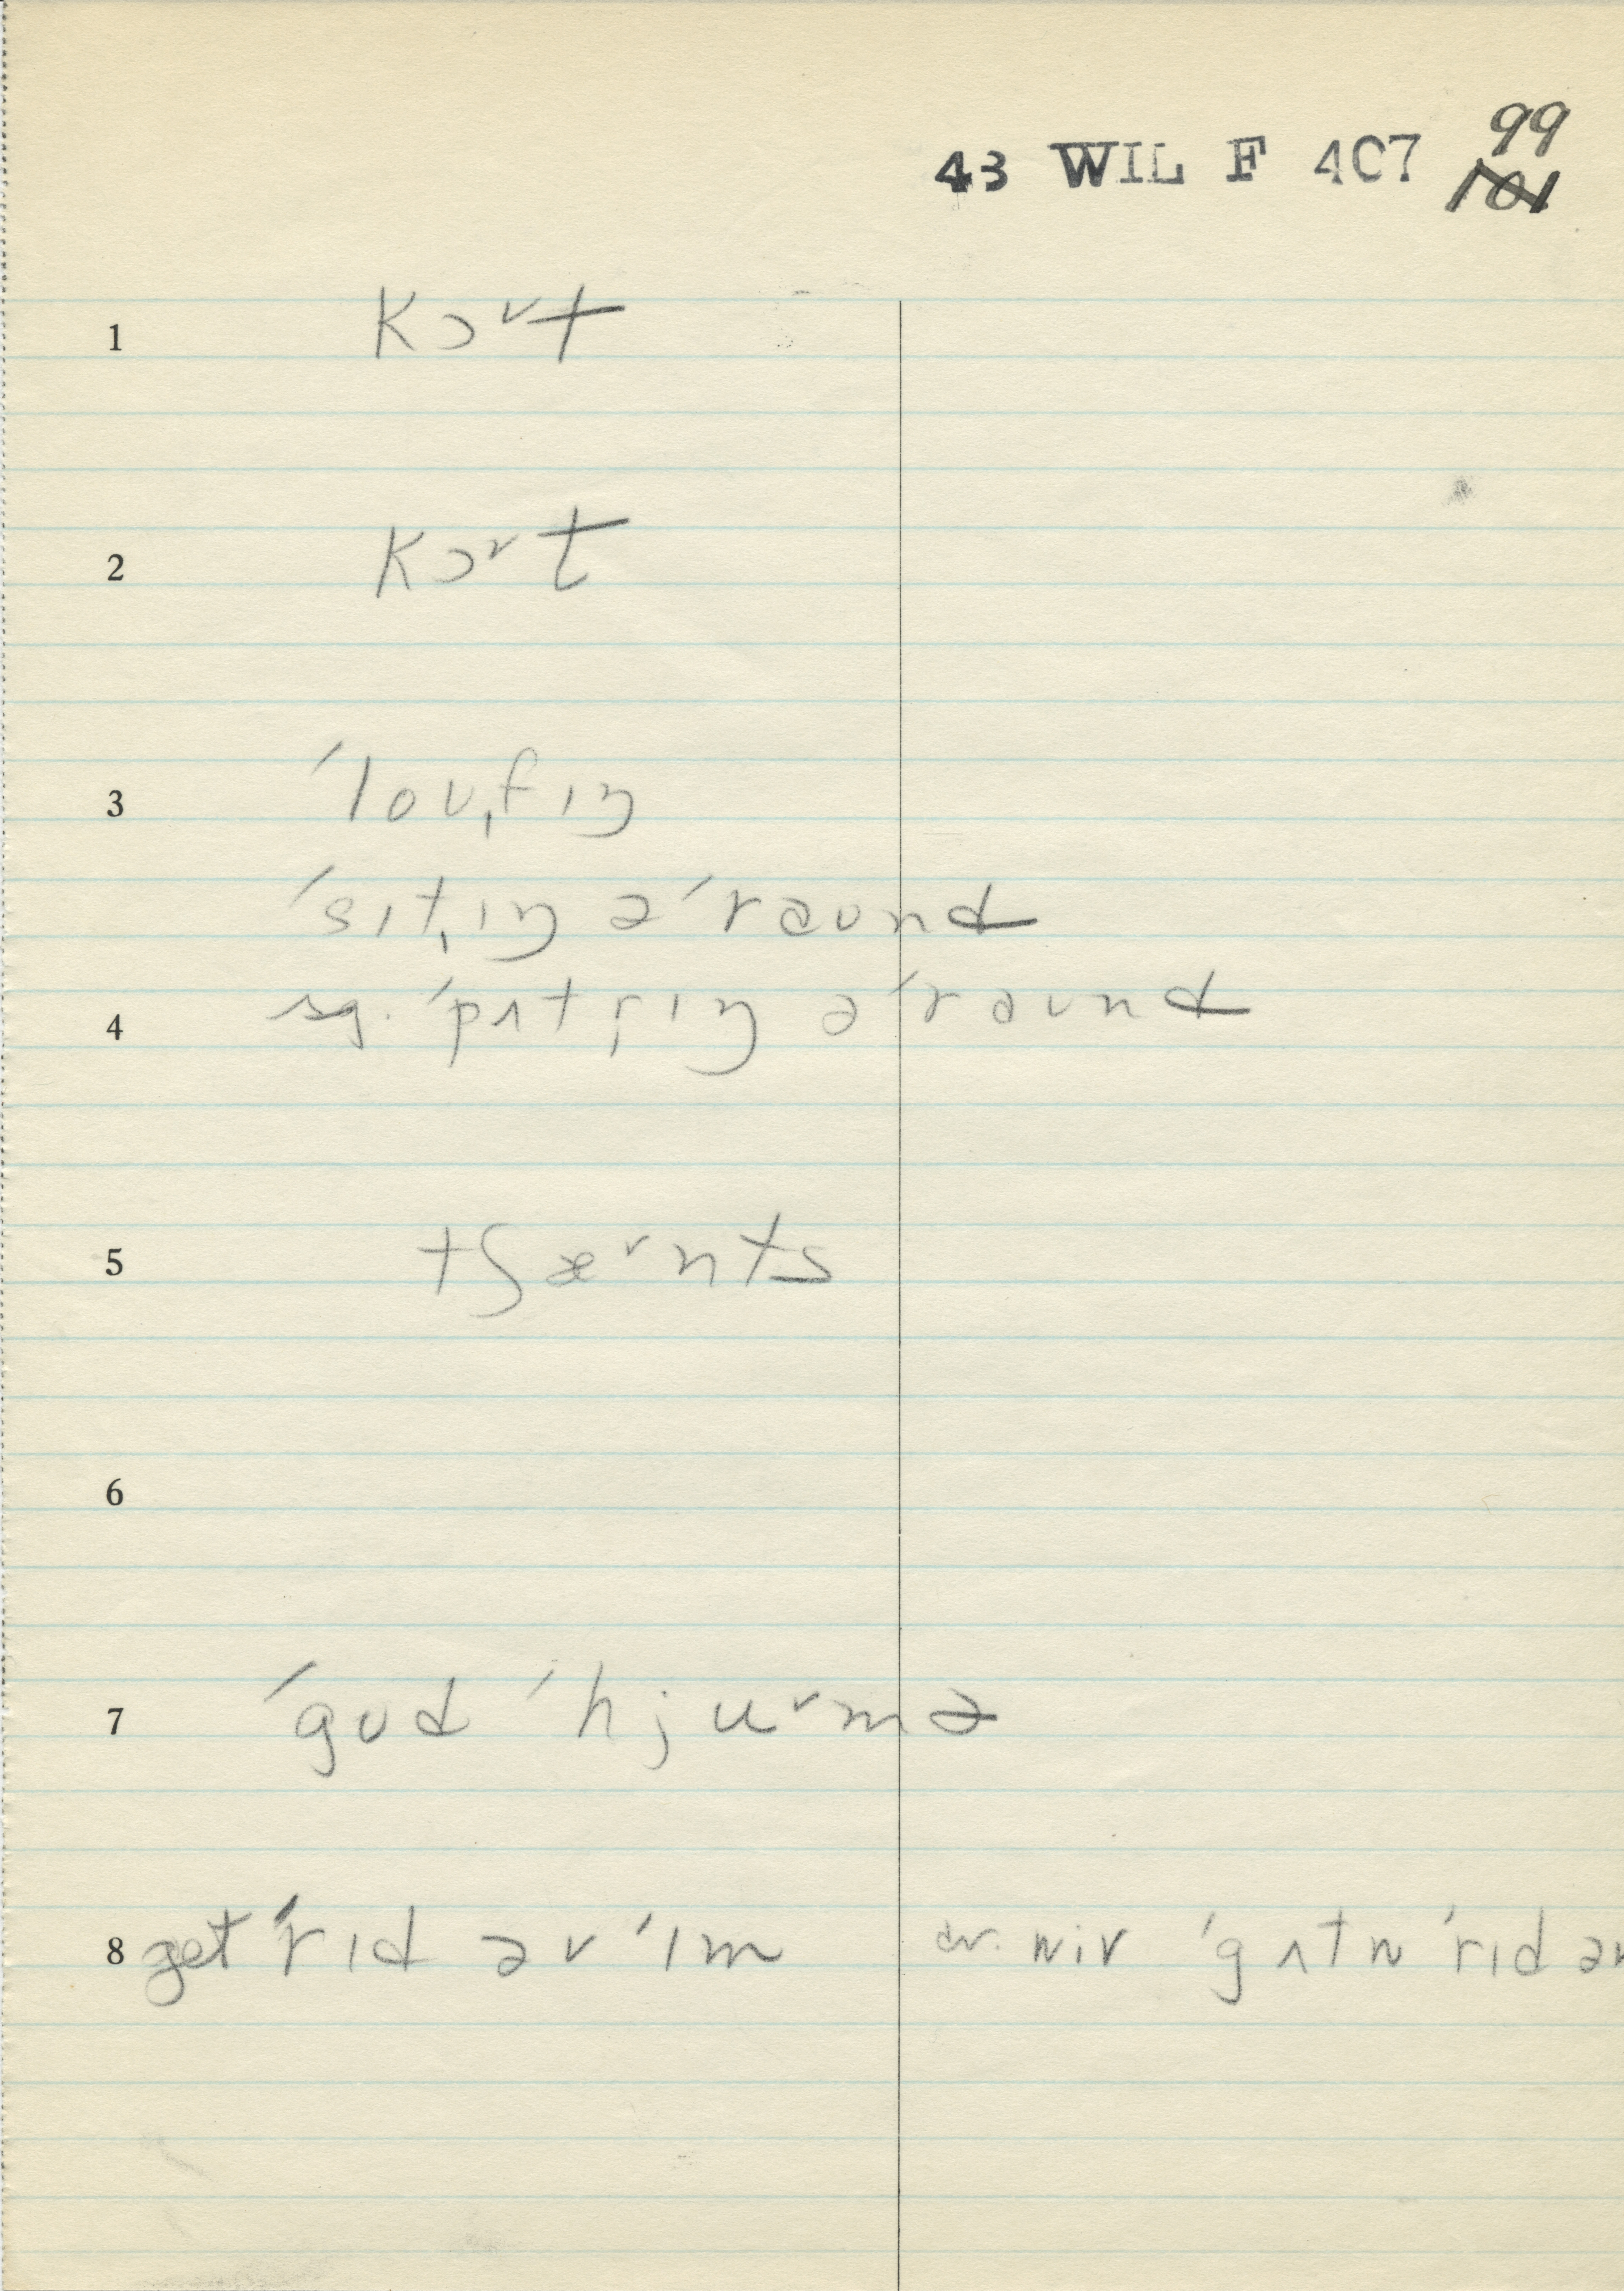 99
43 WIL F 407 101
1 kɔ˅t
2 kɔ˅t
3 ˈloʊˌfɪŋ
ˈsɪtˌɪŋ əˈraʊnd
4 sg. ˈpʌtr̩ˌɪŋ əˈraʊnd
5 tʃæ˅nts
6
7 ˈgʊd ˈhju˅mə
8 get ˈrɪd əv ˈɪm cv. wiv ˈgʌtn ˈrɪd əv